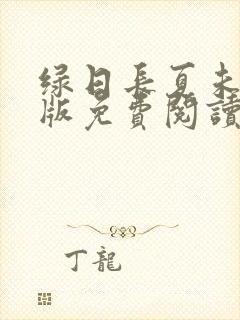 绿日長夏未
版免費閱讀
丁龍